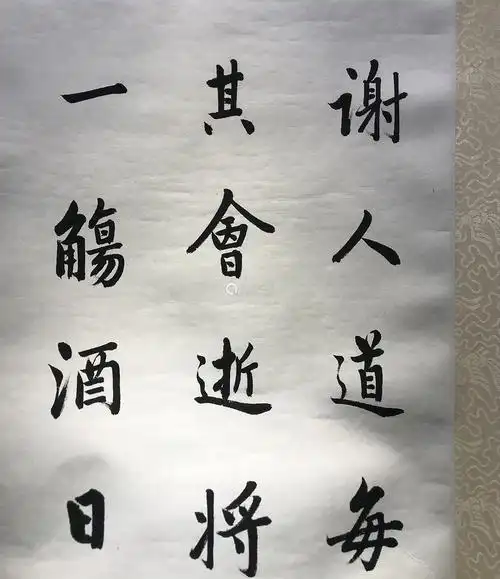 谢人道每
其會逝将
一觴酒日